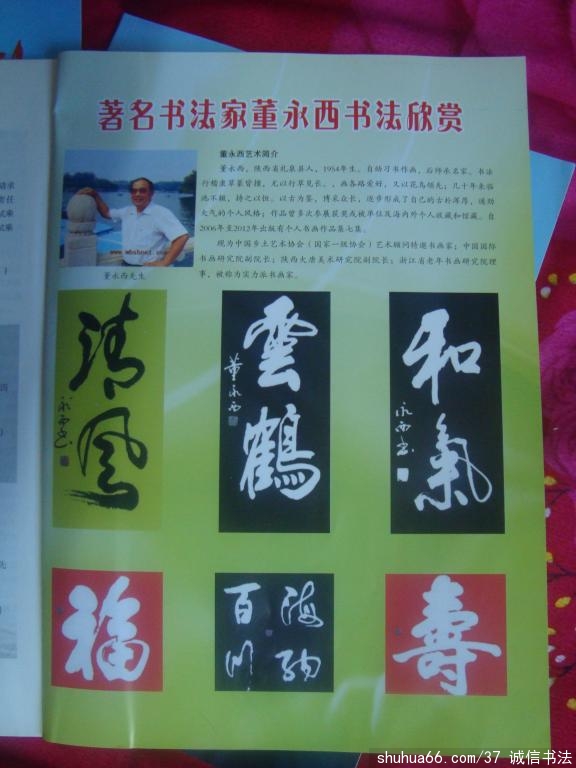 著名书法家董永西书法欣赏
董永西艺术简介
董永西，陕西省礼泉县人，1954年生。自幼习书作画，后师承名家。书法
行楷隶草篆皆攥，尤以行草见长。、画各路爱好，又以花鸟领先；几十年来临
池不辍，持之以恒。以古为鉴，博采众长，逐步形成了自己的古朴浑厚，遒劲
大气的个人风格；作品曾多次参展获奖或被单位及海内外个人收藏和馆藏。自
2006年至2012年出版有个人书画作品集七集。
现为中国乡土艺术协会（国家一级协会）艺术顾问特邀书画家；中国国际
书画研究院副院长；陕西大唐美术研究院副院长；浙江省老年书画研究院理
事，被称为实力派书画家。
董永西先生
清风
永西书
雲鶴
董永西
和氣
永西书
福
海纳
百川
壽
shuhua66.com/37 诚信书法